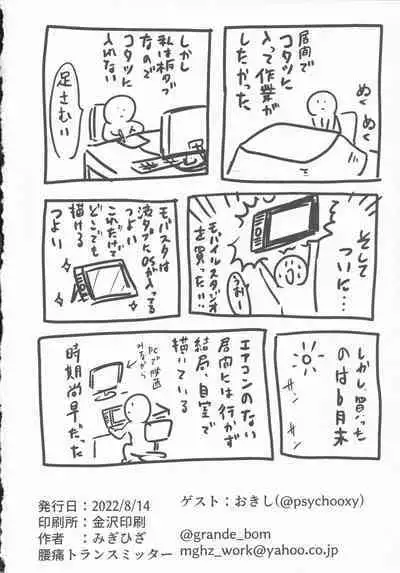 居間で
コタツに
入って作業が
したかった
ぬく
ぬく
しかし
私は板タブ
なので
コタツに
入れない
足さむい
そして
ついに…
モバイルスタジオ
を買った!!
うお
モバスタは
液タブにOSが入ってる
つよい
これだけで
どこでも
描ける
つよい
しかし、買った
のは6月末
エアコンのない
居間には行かず
結局、自室で
描いている
PCで映画
みながら
時期尚早だった
発行日:2022/8/14
印刷所:金沢印刷
作者 :みぎひざ
腰痛トランスミッター
ゲスト:おきし(@psychooxy)
@grande_bom
mghz_work@yahoo.co.jp